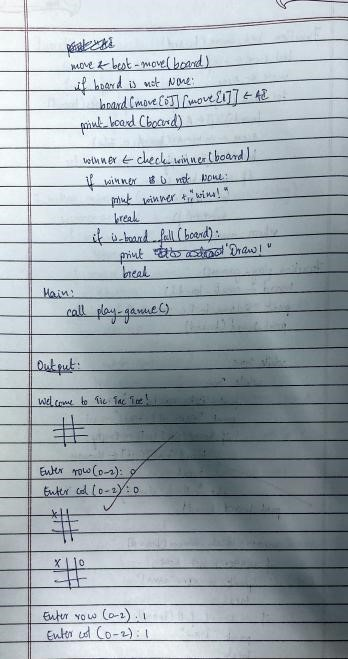 move ← best-move(board)
if board is not None:
board[move[0]][move[1]] ← AI
print_board(board)
winner ← check_winner(board)
if winner is not None:
print winner + "wins!"
break
if is-board_full(board):
print "Draw!"
break
Main:
call play-game()
Output:
Welcome to Tic Tac Toe!
Enter row (0-2): 0
Enter col (0-2): 0
X
X O
Enter row (0-2): 1
Enter col (0-2): 1